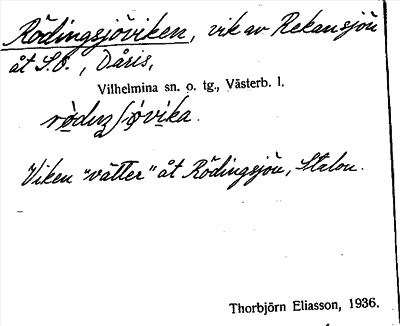 Rödingsjöviken, vik av Rekansjön
åt S.O., Dåris,
Vilhelmina sn. o. tg., Västerb. l.
rø̀dıŋʃǿvìka.
Viken "vätter" åt Rödingsjön, Stalon.
Thorbjörn Eliasson, 1936.